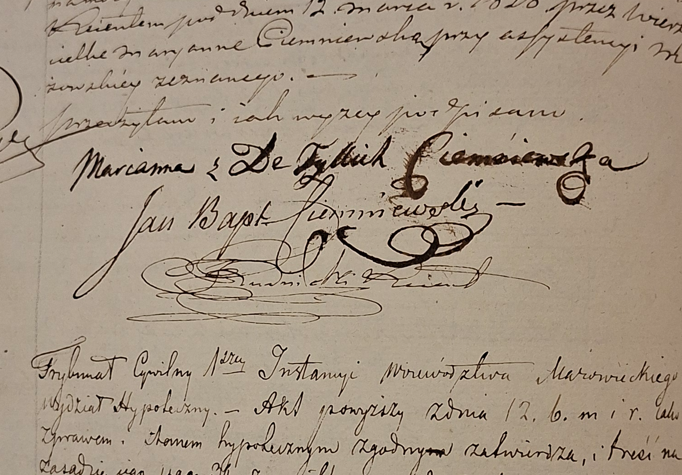 Rejentem pod dniem 12 marca r. 1820 przez Wierz
cielkę Maryannę Ciemniewską przy assystencyi
zeznanego. —
przeczytany i jak wyżej podpisany.
Marianna z De Tyllich Ciemniewska
Jan Bapt. Ciemniewski —
Rejent
Trybunał Cywilny 1szey Instancyi Województwa Mazowieckiego
Wydział Hypoteczny. — Akt powyższy z dnia 12. b. m i r. jako
z prawem i stanem hypotecznym zgodny zatwierdza, i treść na